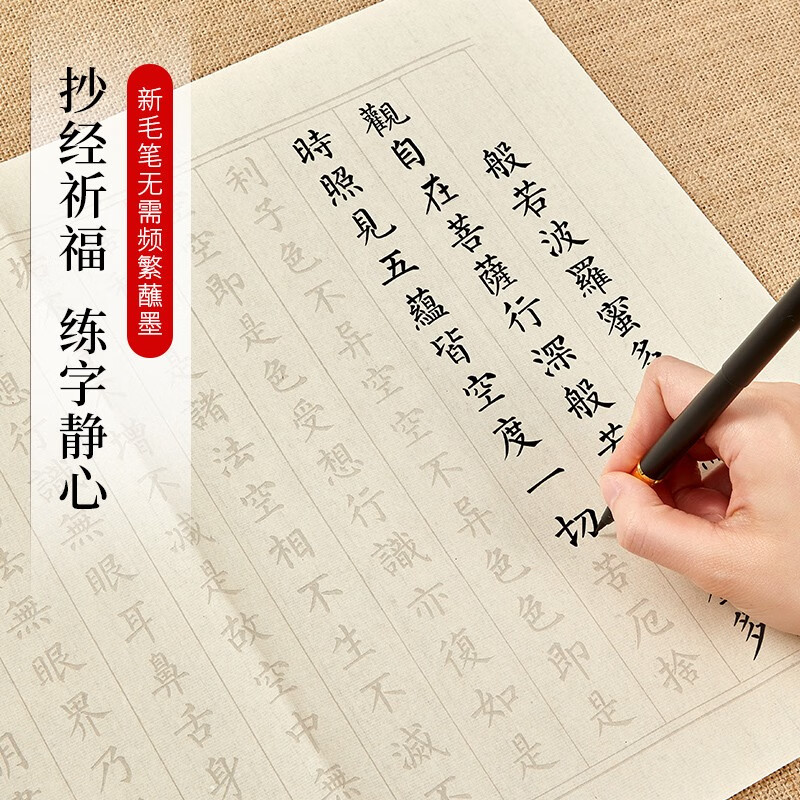 抄经祈福 练字静心
新毛笔无需频繁蘸墨
般若波羅蜜多
觀自在菩薩行深般若
多
時照見五蘊皆空度一切苦厄捨
利子色不异空空不异色色即是
空即是色受想行識亦復如是
是諸法空相不生不滅不
垢
增不減是故空中無
想行識無眼耳鼻舌身
法無眼界乃
明